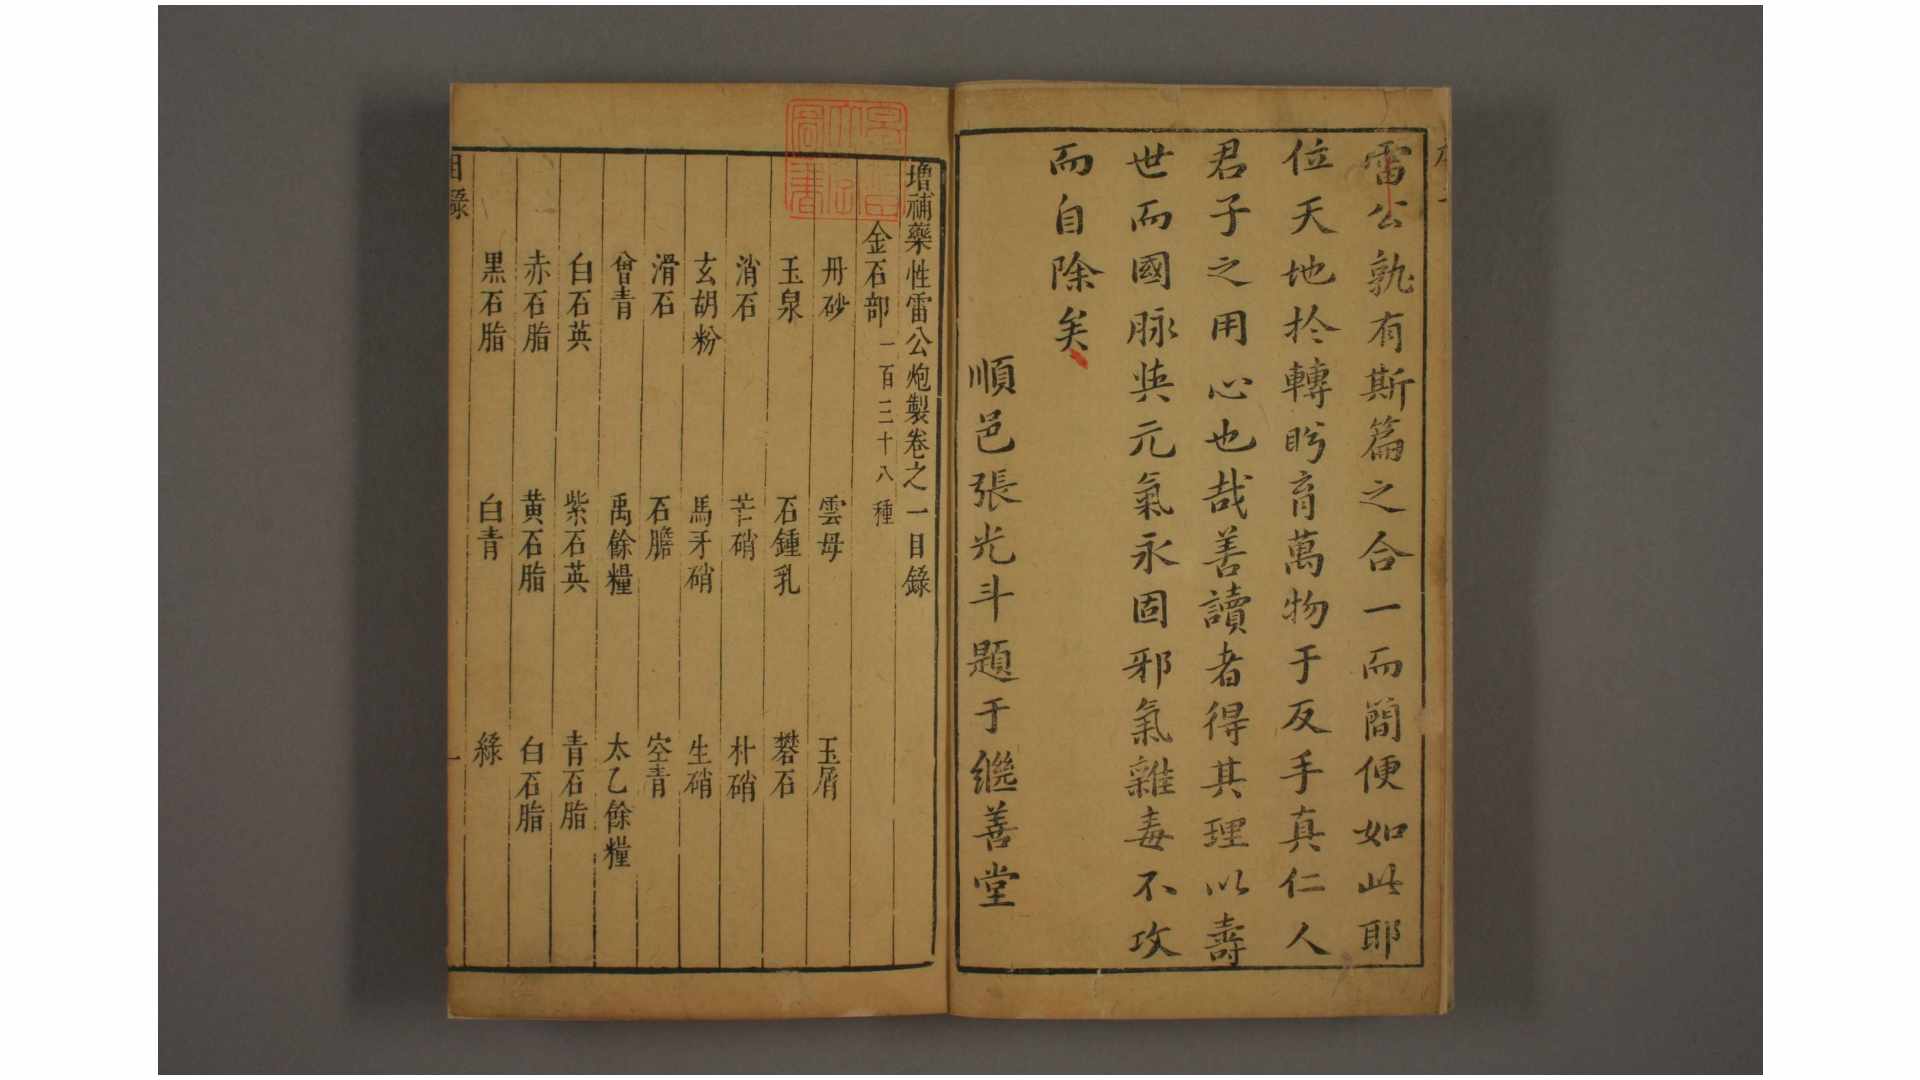 雷公孰有斯篇之合一而簡便如此耶
位天地扵轉眄育萬物于反手真仁人
君子之用心也哉善讀者得其理以壽
世而國脉與元氣永固邪氣雜毒不攻
而自除矣
順邑張光斗題于繼善堂
增補藥性雷公炮製卷之一目錄
金石部 一百三十八種
丹砂 雲母 玉屑
玉泉 石鍾乳 礬石
消石 芒硝 朴硝
玄胡粉 馬牙硝 生硝
滑石 石膽 空青
曾青 禹餘糧 太乙餘糧
白石英 紫石英 青石脂
赤石脂 黃石脂 白石脂
黑石脂 白青 綠
目錄 一